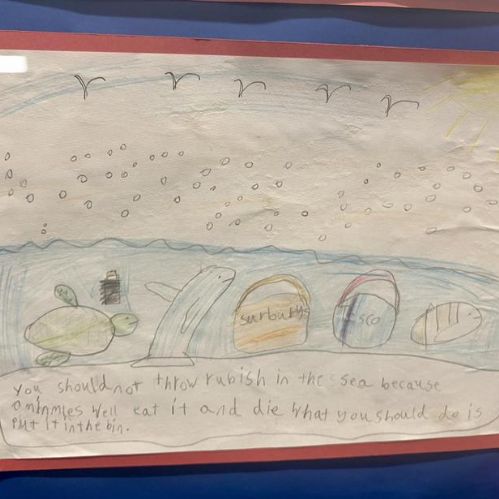 surburys
Tesco
you should not throw rubish in the sea because
aminmles well eat it and die what you should do is
put it in the bin.